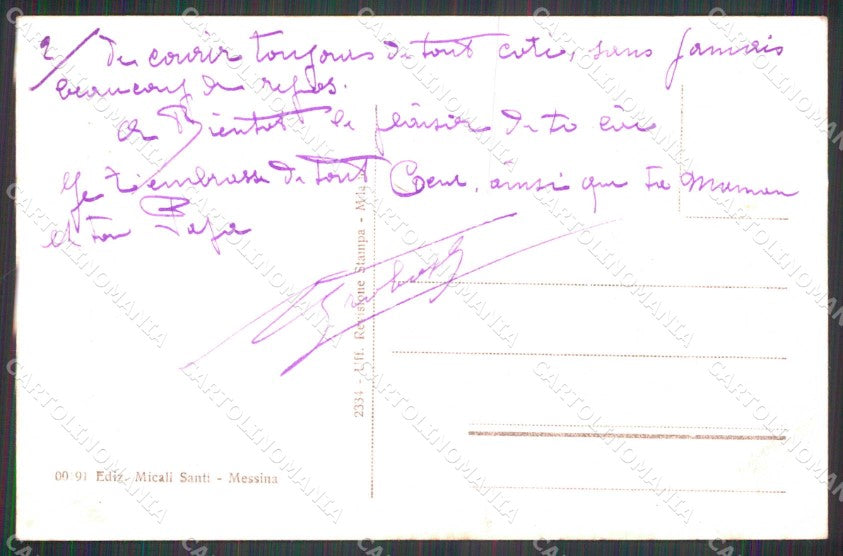 2/ De courir toujours de tout cote, sans jamais
beaucoup de repos.
A Bientot le plaisir de te
Je t'embrasse de tout Coeur, ainsi que ta maman
et ton Papa
2334 - Uff. Revisione Stampa - Mila
00 91 Ediz. Micali Santi - Messina
CARTOLINOMANIA